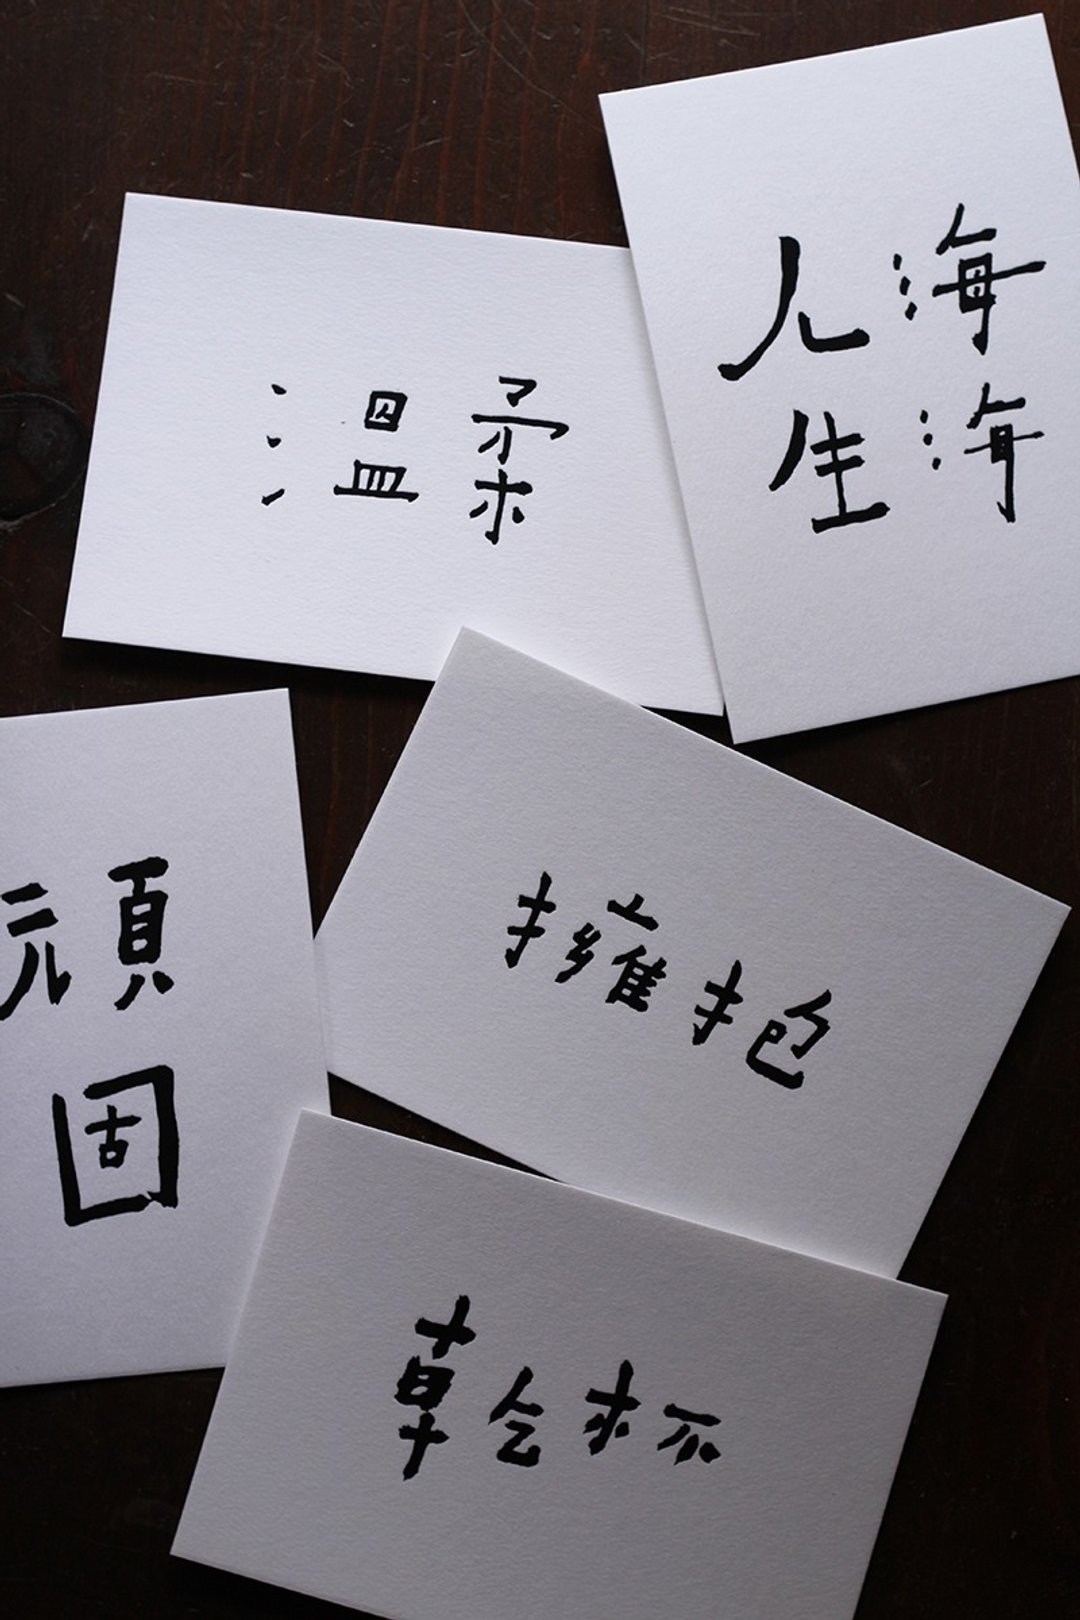 溫柔
人生
海海
頑
固
擁抱
乾杯